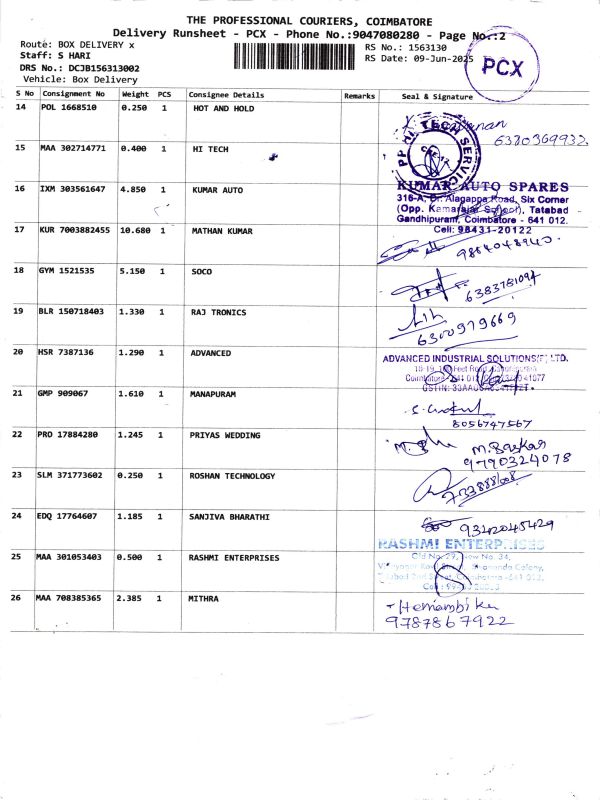 THE PROFESSIONAL COURIERS, COIMBATORE
Delivery Runsheet - PCX - Phone No.:9047080280 - Page No.:2
Route: BOX DELIVERY x
RS No.: 1563130
Staff: S HARI
RS Date: 09-Jun-2025
DRS No.: DCJB156313002
Vehicle: Box Delivery
PCX
S No Consignment No Weight PCS Consignee Details Remarks Seal & Signature
14 POL 1668510 0.250 1 HOT AND HOLD
6380369932
15 MAA 302714771 0.400 1 HI TECH
HI TECH SERVICE
16 IXM 303561647 4.850 1 KUMAR AUTO
KUMAR AUTO SPARES
316-A, Dr. Alagappa Road, Six Corner
(Opp. Kamarajar School), Tatabad
Gandhipuram, Coimbatore - 641 012.
Cell: 98431-20122
17 KUR 7003882455 10.680 1 MATHAN KUMAR
9884048940
18 GYM 1521535 5.150 1 SOCO
6383781094
19 BLR 150718403 1.330 1 RAJ TRONICS
6300979669
20 HSR 7387136 1.290 1 ADVANCED
ADVANCED INDUSTRIAL SOLUTIONS(P) LTD.
21 GMP 909067 1.610 1 MANAPURAM
8056747567
22 PRO 17884280 1.245 1 PRIYAS WEDDING
M. Baskar
9790324078
23 SLM 371773602 0.250 1 ROSHAN TECHNOLOGY
24 EDQ 17764607 1.185 1 SANJIVA BHARATHI
9342045429
25 MAA 301053403 0.500 1 RASHMI ENTERPRISES
RASHMI ENTERPRISES
Old No. 29, New No. 34,
26 MAA 708385365 2.385 1 MITHRA
Hemambika
9787867922